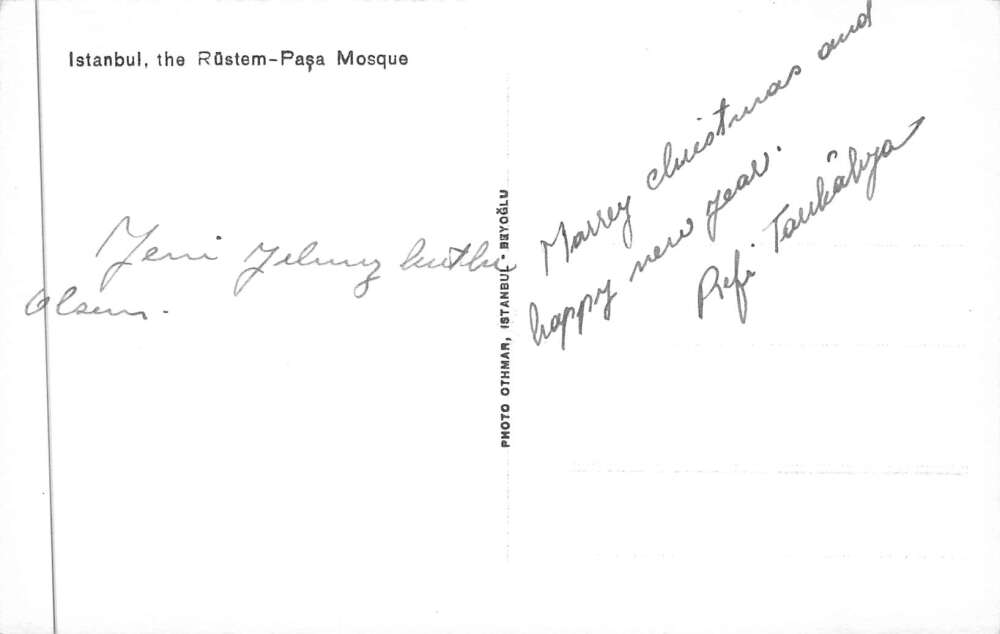 Istanbul, the Rüstem-Paşa Mosque
Yeni yılınız kutlu
olsun.
PHOTO OTHMAR, ISTANBUL - BEYOĞLU
Marrey christmas and
happy new year.
Refi